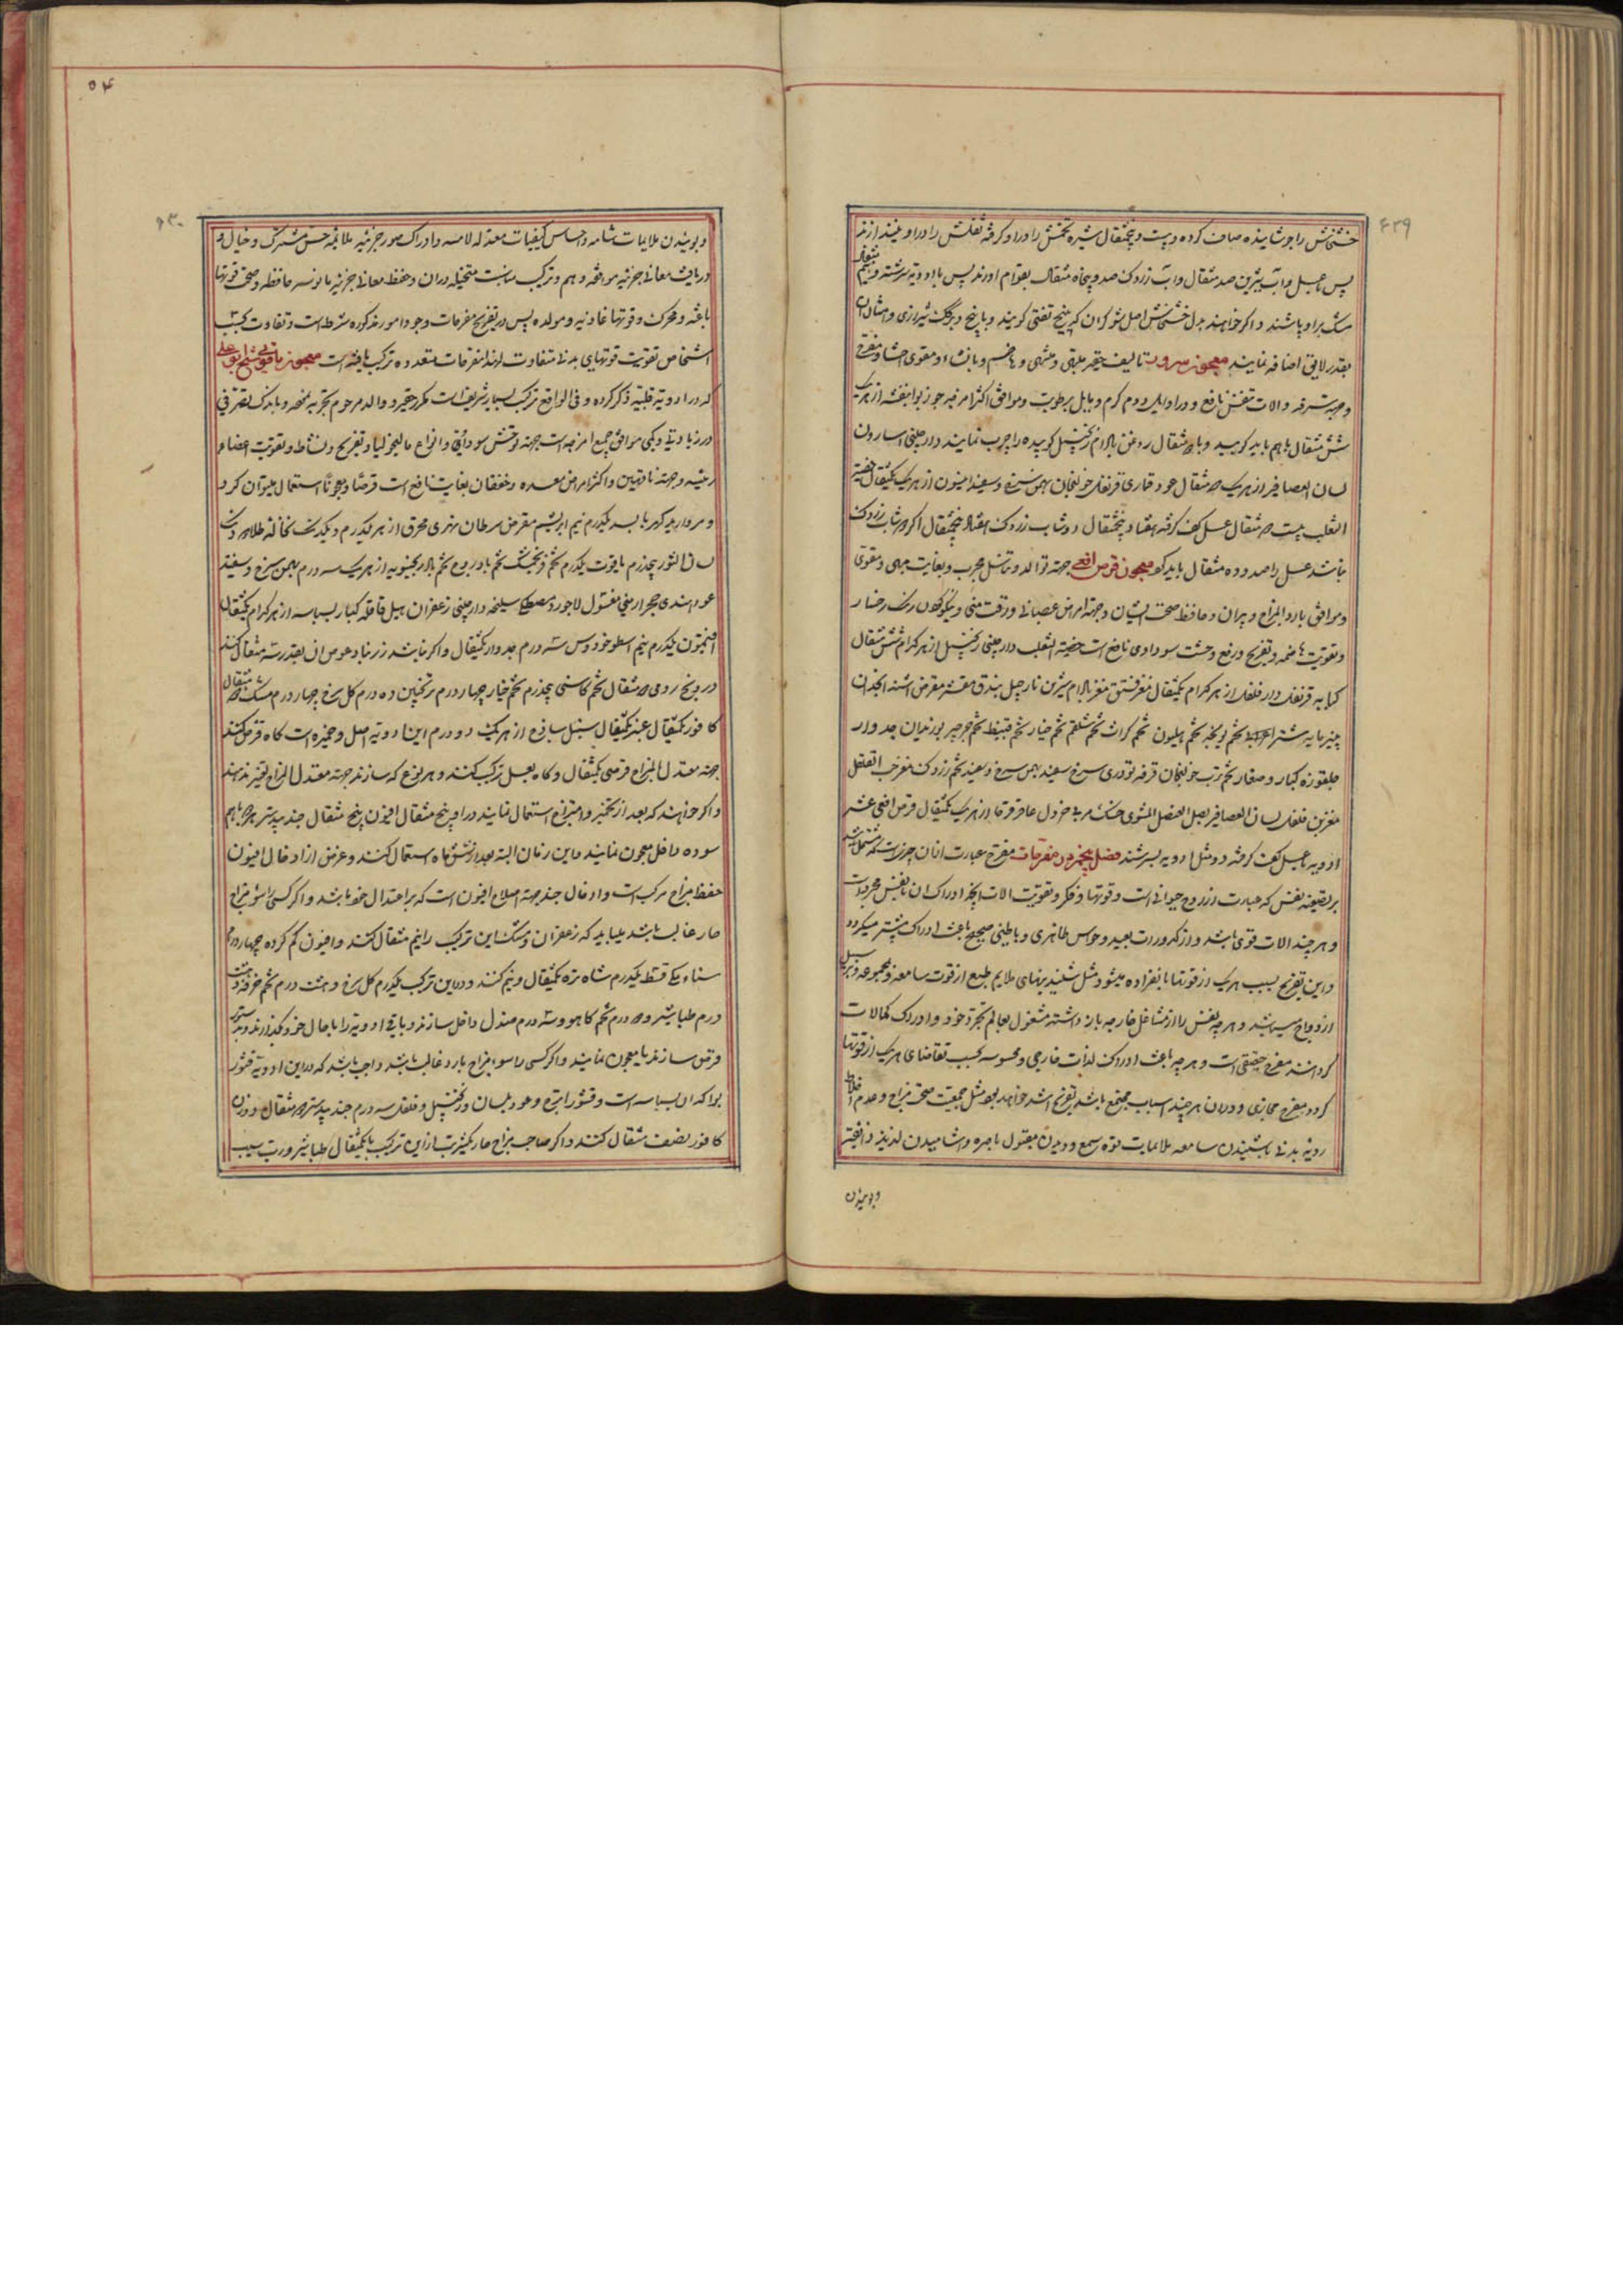 ۶۲۹
خشخاش را جوشانیده صاف کرده و بیست و پنجمثقال شیره تخمش را در او کرفته ثفلش را در او میندازند
پس با عسل و آب شیرین صد مثقال و آب زردک صد و پنجاه مثقال بقوام اورند پس با ادویه سرشته و نیم مثقال
مشک براو باشند و اکر خواهند بدل خشخاش اصل شوکران که بیخ تفتی کویند و با بیخ و برک شیرازی و امثال ان
بقدر لایق اضافه نمایند معجون سروری تالیف حقیر مبهی و مشهی و هاضم و بانشاء و مقوی احشا و مفرح
و جهته سرفه و الات تنفس نافع و در اوایل دوم کرم و مایل برطوبت و موافق اکثر امزجه جوز بوا بنفشه از هریک
شش مثقال باهم باید کوبید و با مثقال روغن بادام زنجبیل کوبیده را چرب نمایند دارچینی اسارون
لسان العصافیر از هریک مثقال عود قماری قرنفل خولنجان بهمن سرخ و سفید افیون از هریک یکمثقال خصیة
الثعلب بیست مثقال عسل کف کرفته هفتاد و پنجمثقال دوشاب زردک هفتاد و پنجمثقال اکر دوشاب زردک
نباشد عسل را صد و ده مثقال باید کرد معجون قرص افعی جهته توالد و تناسل مجرب و بغایت مبهی و مقوی
و موافق بارد المزاج و پیران و حافظ صحت ایشان و جهته امراض عصبانی و رقت منی و نیکو کردن رنک رخسار
و تقویت هاضمه و تفریح و رفع وحشت سوداوی نافع است خصیة الثعلب دارچینی زنجبیل از هر کدام شش مثقال
کبابه قرنفل دارفلفل از هر کدام یکمثقال مغز فستق مغز بادام شیرین نارجیل بندق مقشر مقرض اشنه انجدان
پنیر مایه شتر اعرابی تخم یونجه تخم هلیون تخم کراث تخم شلغم تخم خیار تخم قنبیط تخم جرجیر بوزیدان جدوار
جلغوزه کبار و صغار تخم ترب خولنجان قرفه تودری سرخ سفید بهمن سرخ و سفید تخم زردک مغز حب القلقل
مغزین فلفل لسان العصافیر بصل العنصل المشوی خسک مربی خردل عاقرقرحا از هریک یکمثقال قرص افعی عشر
ادویه با عسل کف کرفته دو مثل ادویه بسرشند فصل پنجم در مفرحات مفرح عبارت از ان چیزیست که مشتمل باشد
بر تصفیه نفس که عبارت از روح حیوانی است و قوتها و فکر و تقویت الات انچه ادراک ان نفیس مجردات
و هرچند الات قوی باشد و از کدورات بعید و حواس ظاهری و باطنی صحیح باعث ادراک بیشتر میکردد
و این تفریح بسبب هریک از قوتها بانفراده میشود مثل شنیدنیهای ملایم طبع از قوت سامعه و مجموعه و بر سبیل
ازدواج میباشد و هر چه نفس را از مشاغل خارجه باز داشته مشغول بعالم تجرد خود و ادراک کمالات
کرداند مفرح حقیقی است و هر چه باعث ادراک لذات خارجی و محسوسه بحسب تقاضای هریک از قوتها
کردد مفرح مجازی و در ان هرچند اسباب مجتمع باشد تفریح اشد خواهد بود مثل جمعیت صحت مزاج و عدم اخلاط
ردیه بدنی با شنیدن سامعه ملایمات قوه سمع و دیدن مقبول باصره و اشامیدن لذیذ ذائقه
و بوئیدن
۵۴
۶۳۰
و بوئیدن ملایمات شامه و احساس کیفیات معتدله لامسه و ادراک صور جزئیه ملائمه حس مشترک و خیال و
دریافت معانی جزئیه موافقه وهم و ترکیب مناسبت متخیله در ان و حفظ معانی جزئیه مانوسه حافظه و صحت قوتها
باعثه و محرک و قوتها غاذیه و مولده پس در تفریح مفرحات وجود امور مذکوره شرط است و تفاوت بحسب
اشخاص تقویت قوتهای بدنی متفاوت لهذا مفرحات متعدده ترکیب یافته است معجون یاقوتی شیخ بوعلی
که در ادویه قلبیه ذکر کرده و فی الواقع ترکیب بسیار شریف است مکرر حقیر و والد مرحوم تجربه نموده و باندک تصرفی
در زیادتی و کمی موافق جمیع امزجه است جهته توحش سوداوی و انواع مالیخولیا و تفریح و نشاط و تقویت اعضاء
رئیسه و جهته ناقهین و اکثر امراض معده و خفقان بغایت نافع است قرصا و معجونا استعمال میتوان کرد
و مروارید کهربا بسد یکدرم نیم ابریشم مقرض سرطان نهری محرق از هر یکدرم و یکدانک نخاله طلا
لسان الثور پنجدرم یاقوت یکدرم تخم فرنجمشک تخم بادروج تخم بادرنجبویه از هریک سه درم بهمن سرخ و سفید
عود هندی حجر ارمنی مغسول لاجورد مصطکی سلیخه دارچینی زعفران هیل قاقله کبار بسباسه از هر کدام یکمثقال
افتیمون یکدرم نیم اسطوخودوس سه درم جدوار یکمثقال و اکر نباشد زرنباد عوض ان بقدر سه مثقال کنند
درونج رومی مثقال تخم کاسنی پنجدرم تخم خیار چهار درم ترنجبین ده درم کل سرخ چهار درم مشک مثقال
کافور یکمثقال عنبر یکمثقال سنبل ساذج از هر یک دو درم این ادویه اصل و خمیره است کاه قرص کنند
جهته معتدل المزاج قرصی یکمثقال و کاه بعسل ترکیب کنند و هر نوع که سازند جهته معتدل المزاج تغییر ندهند
و اکر خواهند که بعد از تخمیر و امتزاج استعمال نمایند در او پنج مثقال افیون پنج مثقال جند بیدستر باهم
سوده داخل معجون نمایند و این زمان البته بعد از شش ماه استعمال کنند و غرض از ادخال افیون
حفظ مزاج مرکب است و ادخال جند جهته اصلاح افیون است که بر اعتدال خود باشد و اکر کسی را سوء مزاج
حار غالب باشد میباید که زعفران و مشک این ترکیب را نیم مثقال کنند و افیون کم کرده چهار درم
سناء مکی قسط یکدرم شاه تره یکمثقال و نیم کنند و در این ترکیب یکدرم کل سرخ و هشت درم تخم خرفه و هشت
درم طباشیر و درم تخم کاهو و سه درم صندل داخل سازند و باقی ادویه را بحال خود بکذارند و بدستور
قرص سازند یا معجون نمایند و اکر کسی را سوء مزاج بارد غالب باشد واجب باشد که در این ادویه قشور
بوا که ان بسباسه است و قشور اترج و عود بلسان و زنجبیل و فلفل سه درم جند بیدستر مثقال و وزن
کافور نصف مثقال کنند و اکر صاحب مزاج حار یکشربت از این ترکیب با یکمثقال طباشیر و رب سیب